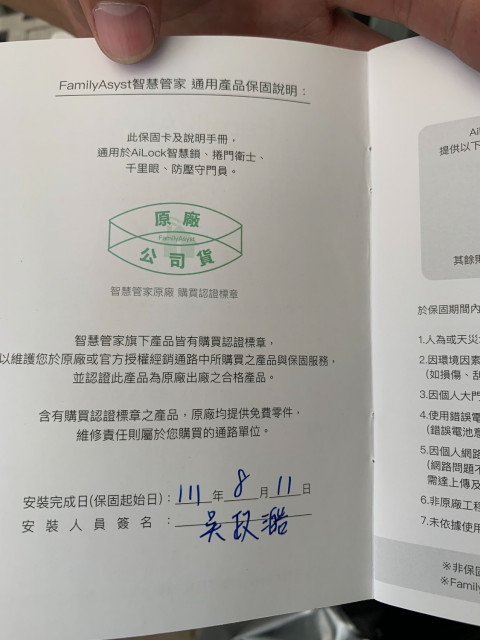 FamilyAsyst智慧管家 通用產品保固說明：
此保固卡及說明手冊，
通用於AiLock智慧鎖、捲門衛士、
千里眼、防壓守門員。
原廠
FamilyAsyst
公司貨
智慧管家原廠 購買認證標章
智慧管家旗下產品皆有購買認證標章，
以維護您於原廠或官方授權經銷通路中所購買之產品與保固服務，
並認證此產品為原廠出廠之合格產品。
含有購買認證標章之產品，原廠均提供免費零件，
維修責任則屬於您購買的通路單位。
安裝完成日(保固起始日)：111年8月11日
安裝人員簽名：吳
Ai
提供以下
其餘則
於保固期間內
1.人為或天災
2.因環境因素
(如損傷、刮
3.因個人大門
4.使用錯誤電
(錯誤電池意
5.因個人網路
(網路問題不
需達上傳及
6.非原廠工程
7.未依據使用
※非保固
※Family